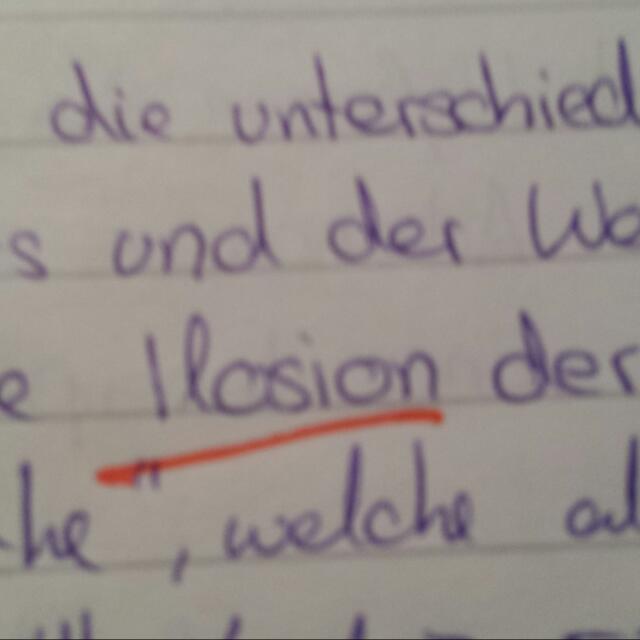 die unterschied
s und der Wa
e Ilosion der
he", welche al